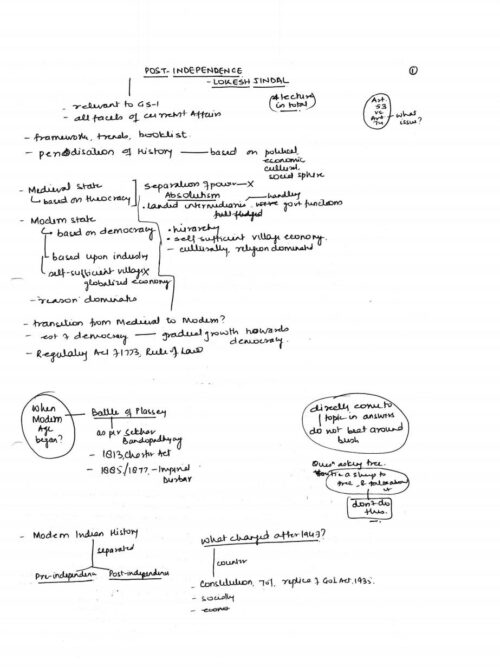 POST-INDEPENDENCE
①
- LOKESH JINDAL
- relevant to GS-1
lecture in total
- all facets of current Affair
Art 53 vs Art 74 - what issue?
- framework, trends, booklist.
- periodisation of History — based on political
economic
cultural
social sphere
- Medieval state
↳ based on theocracy
Separation of power — X
Absolutism
handling
• landed intermediaries were govt functions
full fledged
- Modern state
↳ based on democracy
• hierarchy
• self sufficient village economy.
- culturally, religion dominated
↳ based upon industry
↳ self-sufficient village X
globalized economy
- 'reason' dominates
- transition from Medieval to Modern?
- est of democracy — gradual growth towards
democracy.
- Regulating Act of 1773, Rule of Law
When Modern Age began?
- Battle of Plassey
as per Sekhar
Bandopadhyay
- 1813, Charter Act
- 1885/1877 - Imperial
Durbar
directly come to
topic in answers
do not beat around
bush
Ques asking tree.
tie a sheep to
tree, &
don't do
this.
- Modern Indian History
separated
Pre-independence
Post-independence
What changed after 1947?
counter
- Constitution, 70% replica of GoI Act, 1935.
- socially
- econo